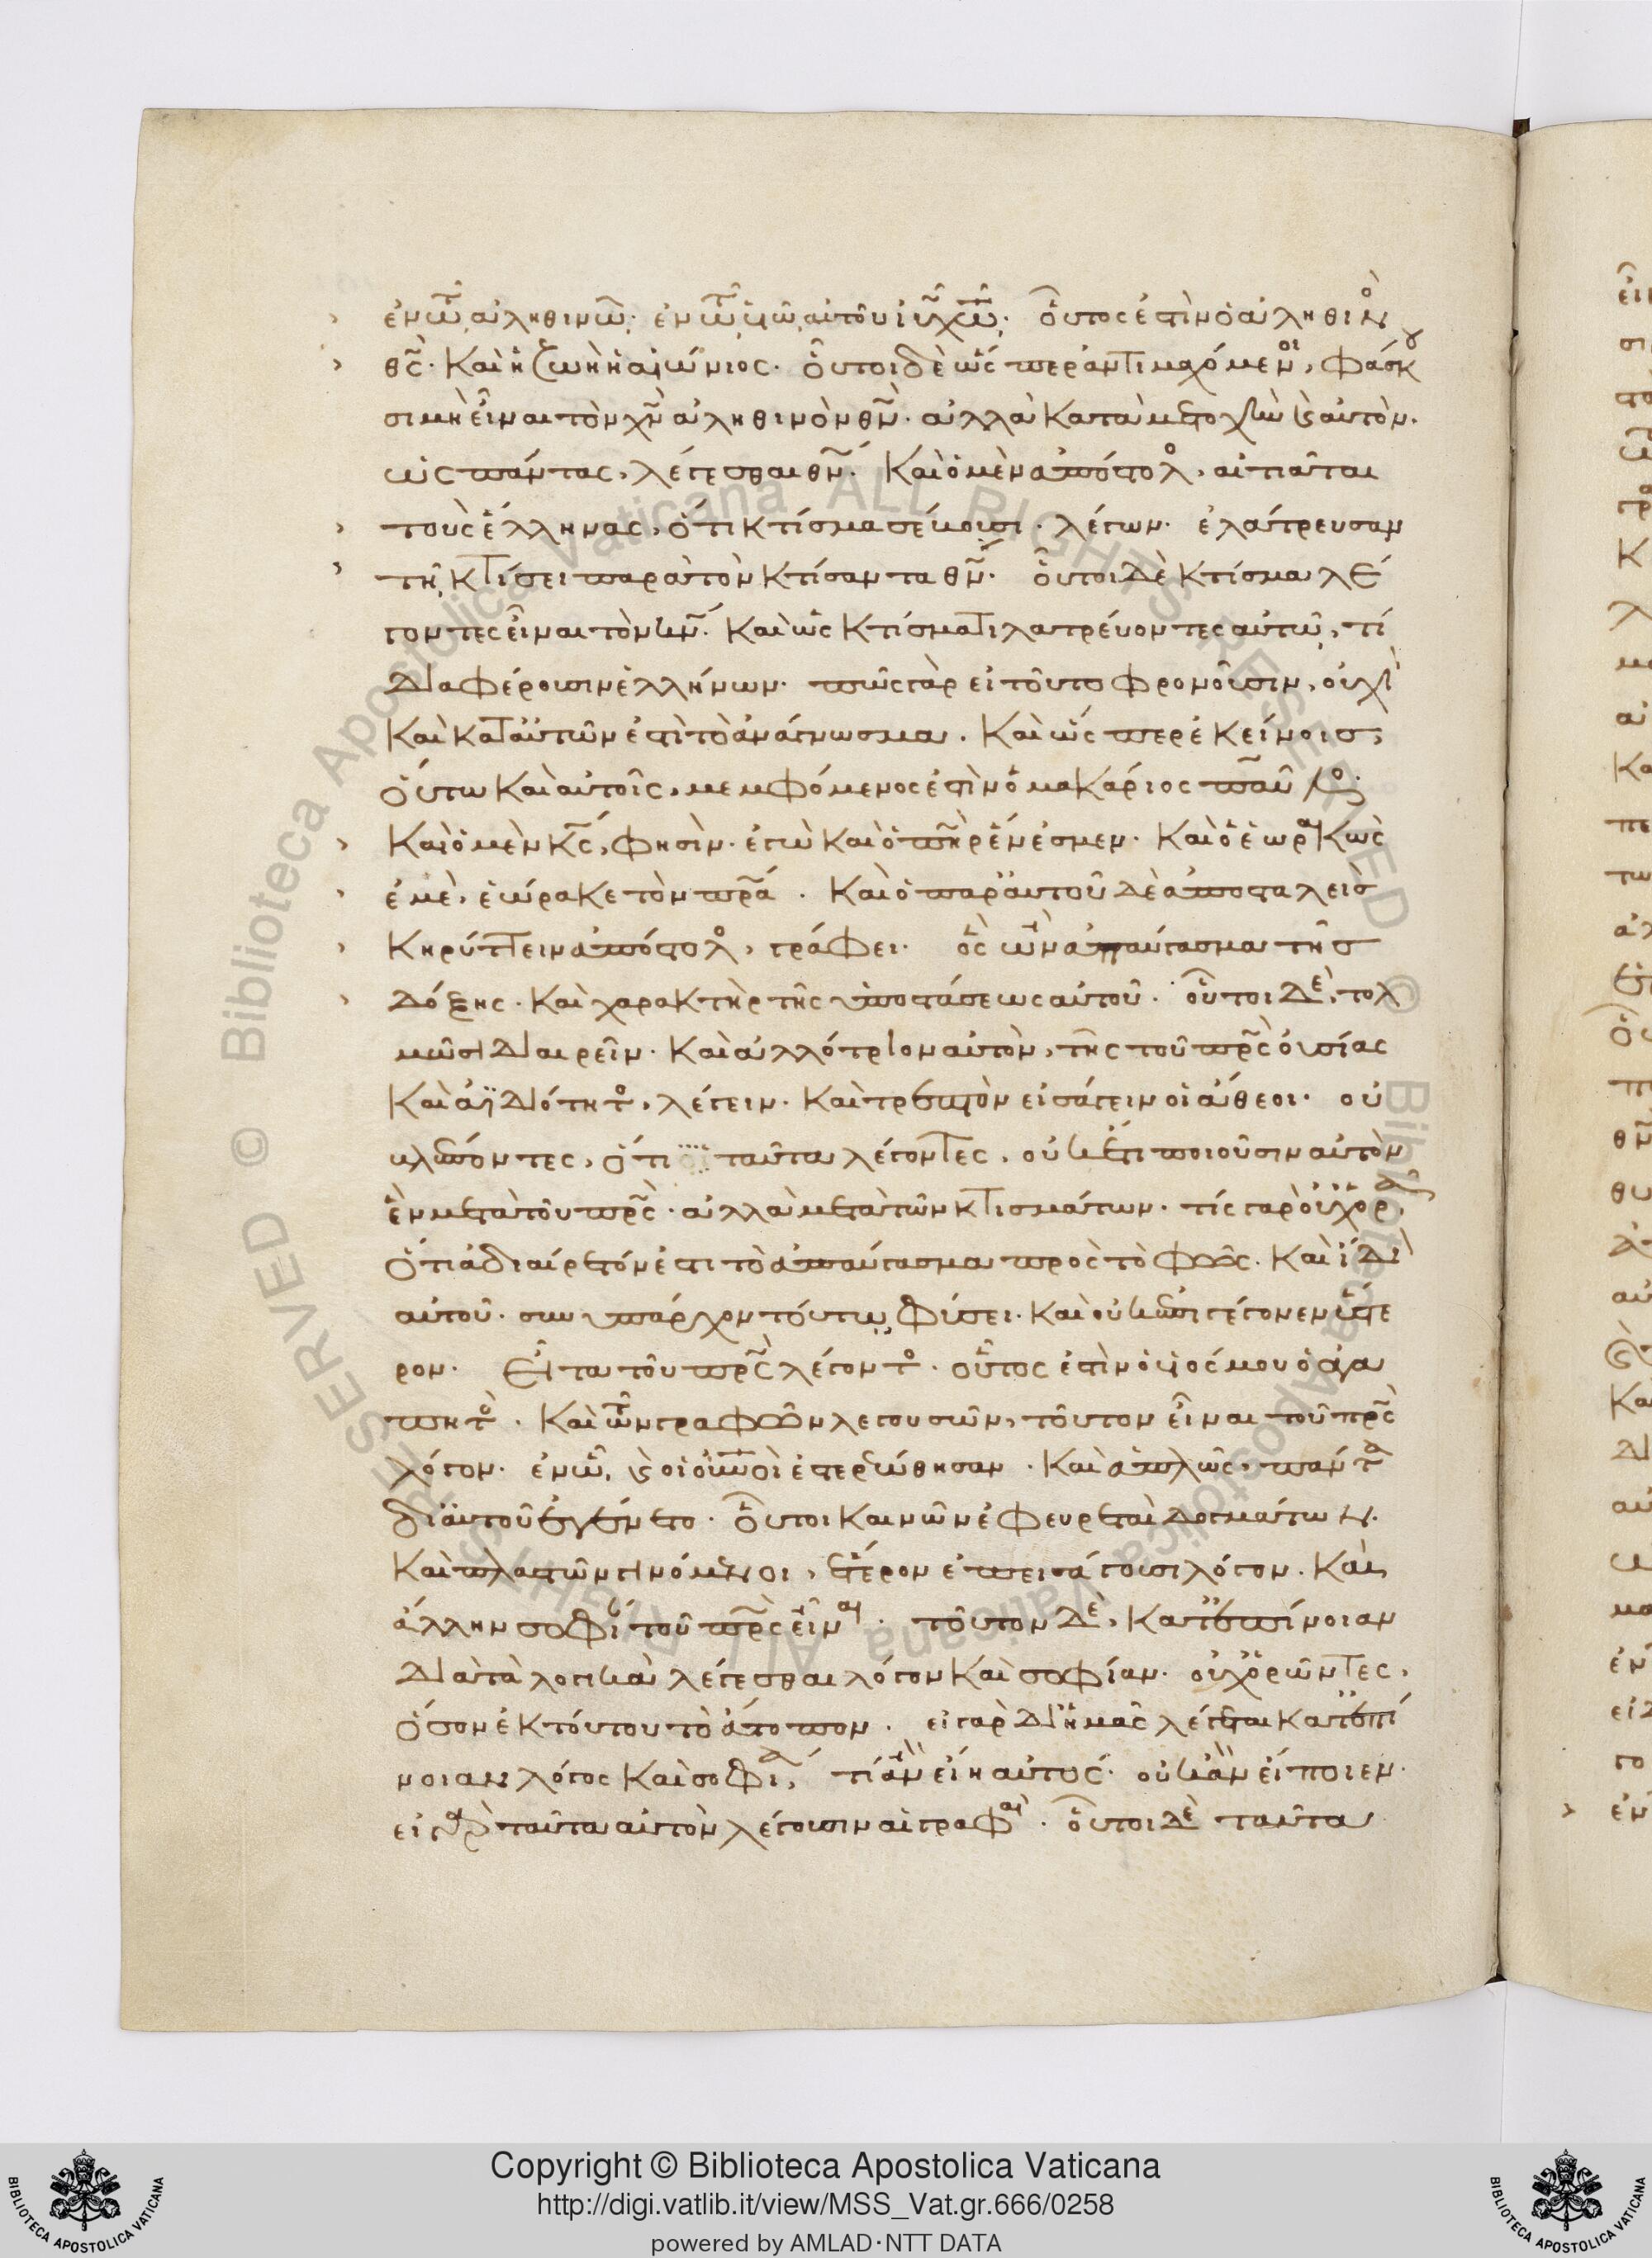 ἐν τῷ ἀληθινῷ· ἐν τῷ υἱῷ αὐτοῦ ἰῦ χῷ· οὗτός ἐστιν ὁ ἀληθινὸς
θς̅· καὶ ἡ ζωὴ ἡ αἰώνιος· οὗτοι δὲ ὥσπερ ἀντιμαχόμενοι, φάσκου
σι μὴ εἶναι τὸν χν̅ ἀληθινὸν θν̅· ἀλλὰ κατὰ μετοχὴν καὶ αὐτὸν.
ὡς πάντας, λέγεσθαι θν̅. καὶ ὁ μὲν ἀπόστολος, αἰτιᾶται
τοὺς ἕλληνας, ὅτι κτίσμα σέβουσι· λέγων· ἐλάτρευσαν
τῇ κτίσει παρὰ τὸν κτίσαντα θν̅· οὗτοι δὲ κτίσμα λέ
γοντες εἶναι τὸν κν̅. καὶ ὡς κτίσματι λατρεύοντες αὐτῷ, τί
διαφέρουσιν ἑλλήνων· πῶς γὰρ εἰ τοῦτο φρονοῦσιν, οὐχὶ
καὶ κατ' αὐτῶν ἐστὶ τὸ ἀνάγνωσμα. καὶ ὥσπερ ἐκείνοις,
οὕτω καὶ αὐτοῖς, μεμφόμενος ἐστὶν ὁ μακάριος παῦλος·
καὶ ὁ μὲν κς̅, φησὶν· ἐγὼ καὶ ὁ πηρ ἕν ἐσμεν· καὶ ὁ ἑωρακὼς
ἐμὲ, ἑώρακε τὸν πρα̅. καὶ ὁ παρ' αὐτοῦ δὲ ἀποσταλεὶς
κηρύττειν ἀπόστολος, γράφει· ὃς ὢν ἀπαύγασμα τῆς
δόξης· καὶ χαρακτὴρ τῆς ὑποστάσεως αὐτοῦ· οὗτοι δὲ, τολ
μῶσι διαιρεῖν· καὶ ἀλλότριον αὐτὸν, τῆς τοῦ πρς̅ οὐσίας
καὶ ἀϊδιότητος, λέγειν· καὶ τρεπτὸν εἰσάγειν οἱ ἄθεοι· οὐ
βλέποντες, ὅτι ταῦτα λέγοντες, οὐκ ἔτι ποιοῦσιν αὐτὸν
ἓν μετὰ τοῦ πρς̅· ἀλλὰ μετὰ τῶν κτισμάτων· τίς γὰρ οὐχ ὁρᾷ,
ὅτι ἀδιαίρετόν ἐστι τὸ ἀπαύγασμα πρὸς τὸ φῶς· καὶ ἴδι
αὐτοῦ· συνυπάρχον τούτῳ φύσει· καὶ οὐκ ἐπιγέγονεν ὕστε
ρον· Εἶτα τοῦ πρς̅ λέγοντος· οὗτός ἐστιν ὁ υἱός μου ὁ ἀγα
πητός· καὶ τῶν γραφῶν λεγουσῶν, τοῦτον εἶναι τοῦ πρς̅
λόγον· ἐν ᾧ, καὶ οἱ οὐρανοὶ ἐστερεώθησαν· καὶ ἁπλῶς, πάντα
δι' αὐτοῦ ἐγένετο· οὗτοι καινῶν ἐφευρεταὶ δογμάτων.
καὶ πλαστῶν γινόμενοι, ἕτερον ἐπεισάγουσι λόγον. καὶ
ἄλλην σοφίαν τοῦ πρς̅ εἶναι· τοῦτον δὲ, κατ' ἐπίνοιαν
διὰ τὰ λογικὰ λέγεσθαι λόγον καὶ σοφίαν· οὐχ ὁρῶντες,
ὅσον ἐκ τούτου τὸ ἄτοπον· εἰ γὰρ δι' ἡμᾶς λέγεται κατ' ἐπί
νοιαν λόγος καὶ σοφία, τί ἂν εἴη αὐτός· οὐκ ἂν εἴποιεν·
εἰ γὰρ ταῦτα αὐτὸν λέγουσιν αἱ γραφαὶ· οὗτοι δὲ ταῦτα
Copyright © Biblioteca Apostolica Vaticana
http://digi.vatlib.it/view/MSS_Vat.gr.666/0258
powered by AMLAD·NTT DATA